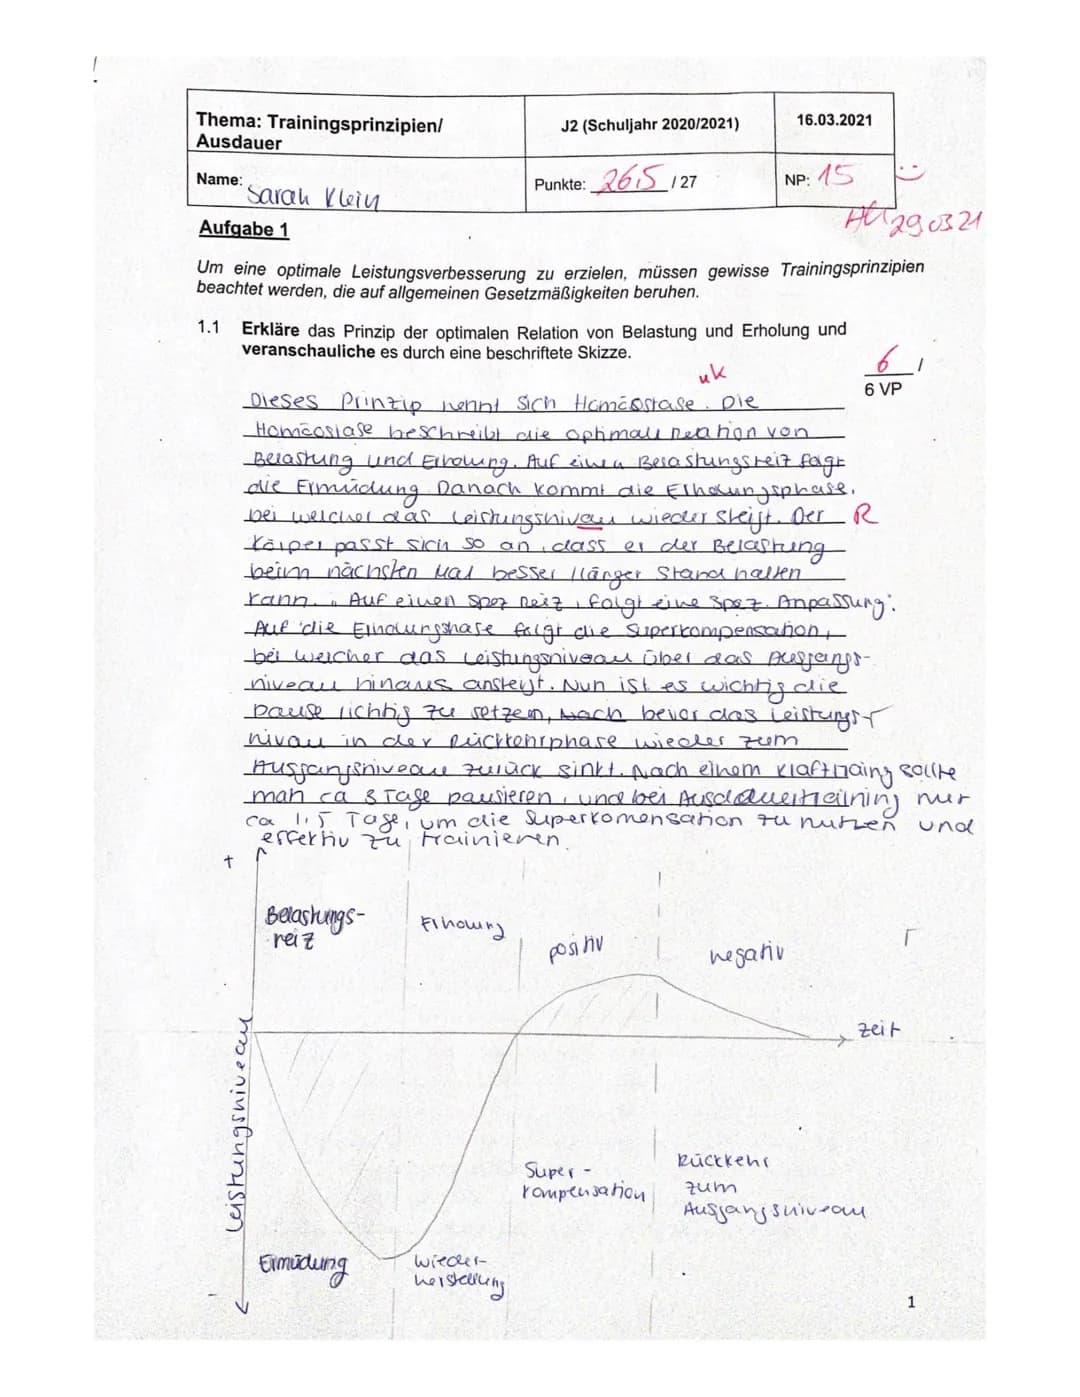 Thema: Trainingsprinzipien/
Ausdauer
J2 (Schuljahr 2020/2021)
16.03.2021
Name: Sarah Klein
Punkte: 26,5 / 27
NP: 15 :)
29.03.21
Aufgabe 1
Um eine optimale Leistungsverbesserung zu erzielen, müssen gewisse Trainingsprinzipien
beachtet werden, die auf allgemeinen Gesetzmäßigkeiten beruhen.
1.1 Erkläre das Prinzip der optimalen Relation von Belastung und Erholung und
veranschauliche es durch eine beschriftete Skizze.
6 /
6 VP
uk
Dieses Prinzip nennt sich Homöostase. Die
Homöostase beschreibt die optimale Reation von
Belastung und Erholung. Auf einen Belastungsreiz folgt
die Ermüdung. Danach kommt die Erholungsphase,
bei welcher das Leistungsnivau wieder steigt. Der R
Körper passt sich so an, dass er der Belastung
beim nächsten Mal besser / länger Stand halten
kann. "Auf einen spez Reiz, folgt eine spez. Anpassung".
Auf die Erholungshase folgt die Superkompensation,
bei welcher das Leistungsniveau über das Ausgangs-
niveau hinaus ansteigt. Nun ist es wichtig die
Pause richtig zu setzen, bevor das Leistungs-
nivau in der Rückkehrphase wieder zum
Ausgangsniveau zurück sinkt. Nach einem Krafttraing sollte
man ca 3 Tage pausieren, und bei Ausdauertraining nur
ca 1,5 Tage, um die Superkomensation zu nutzen und
effektiv zu trainieren.
+
Belastungs-
reiz
Erholung
positiv
negativ
Zeit
Leistungsniveau
Super-
kompensation
Rückkehr
zum
Ausgangsniveau
Ermüdung
Wieder-
herstellung
-
1